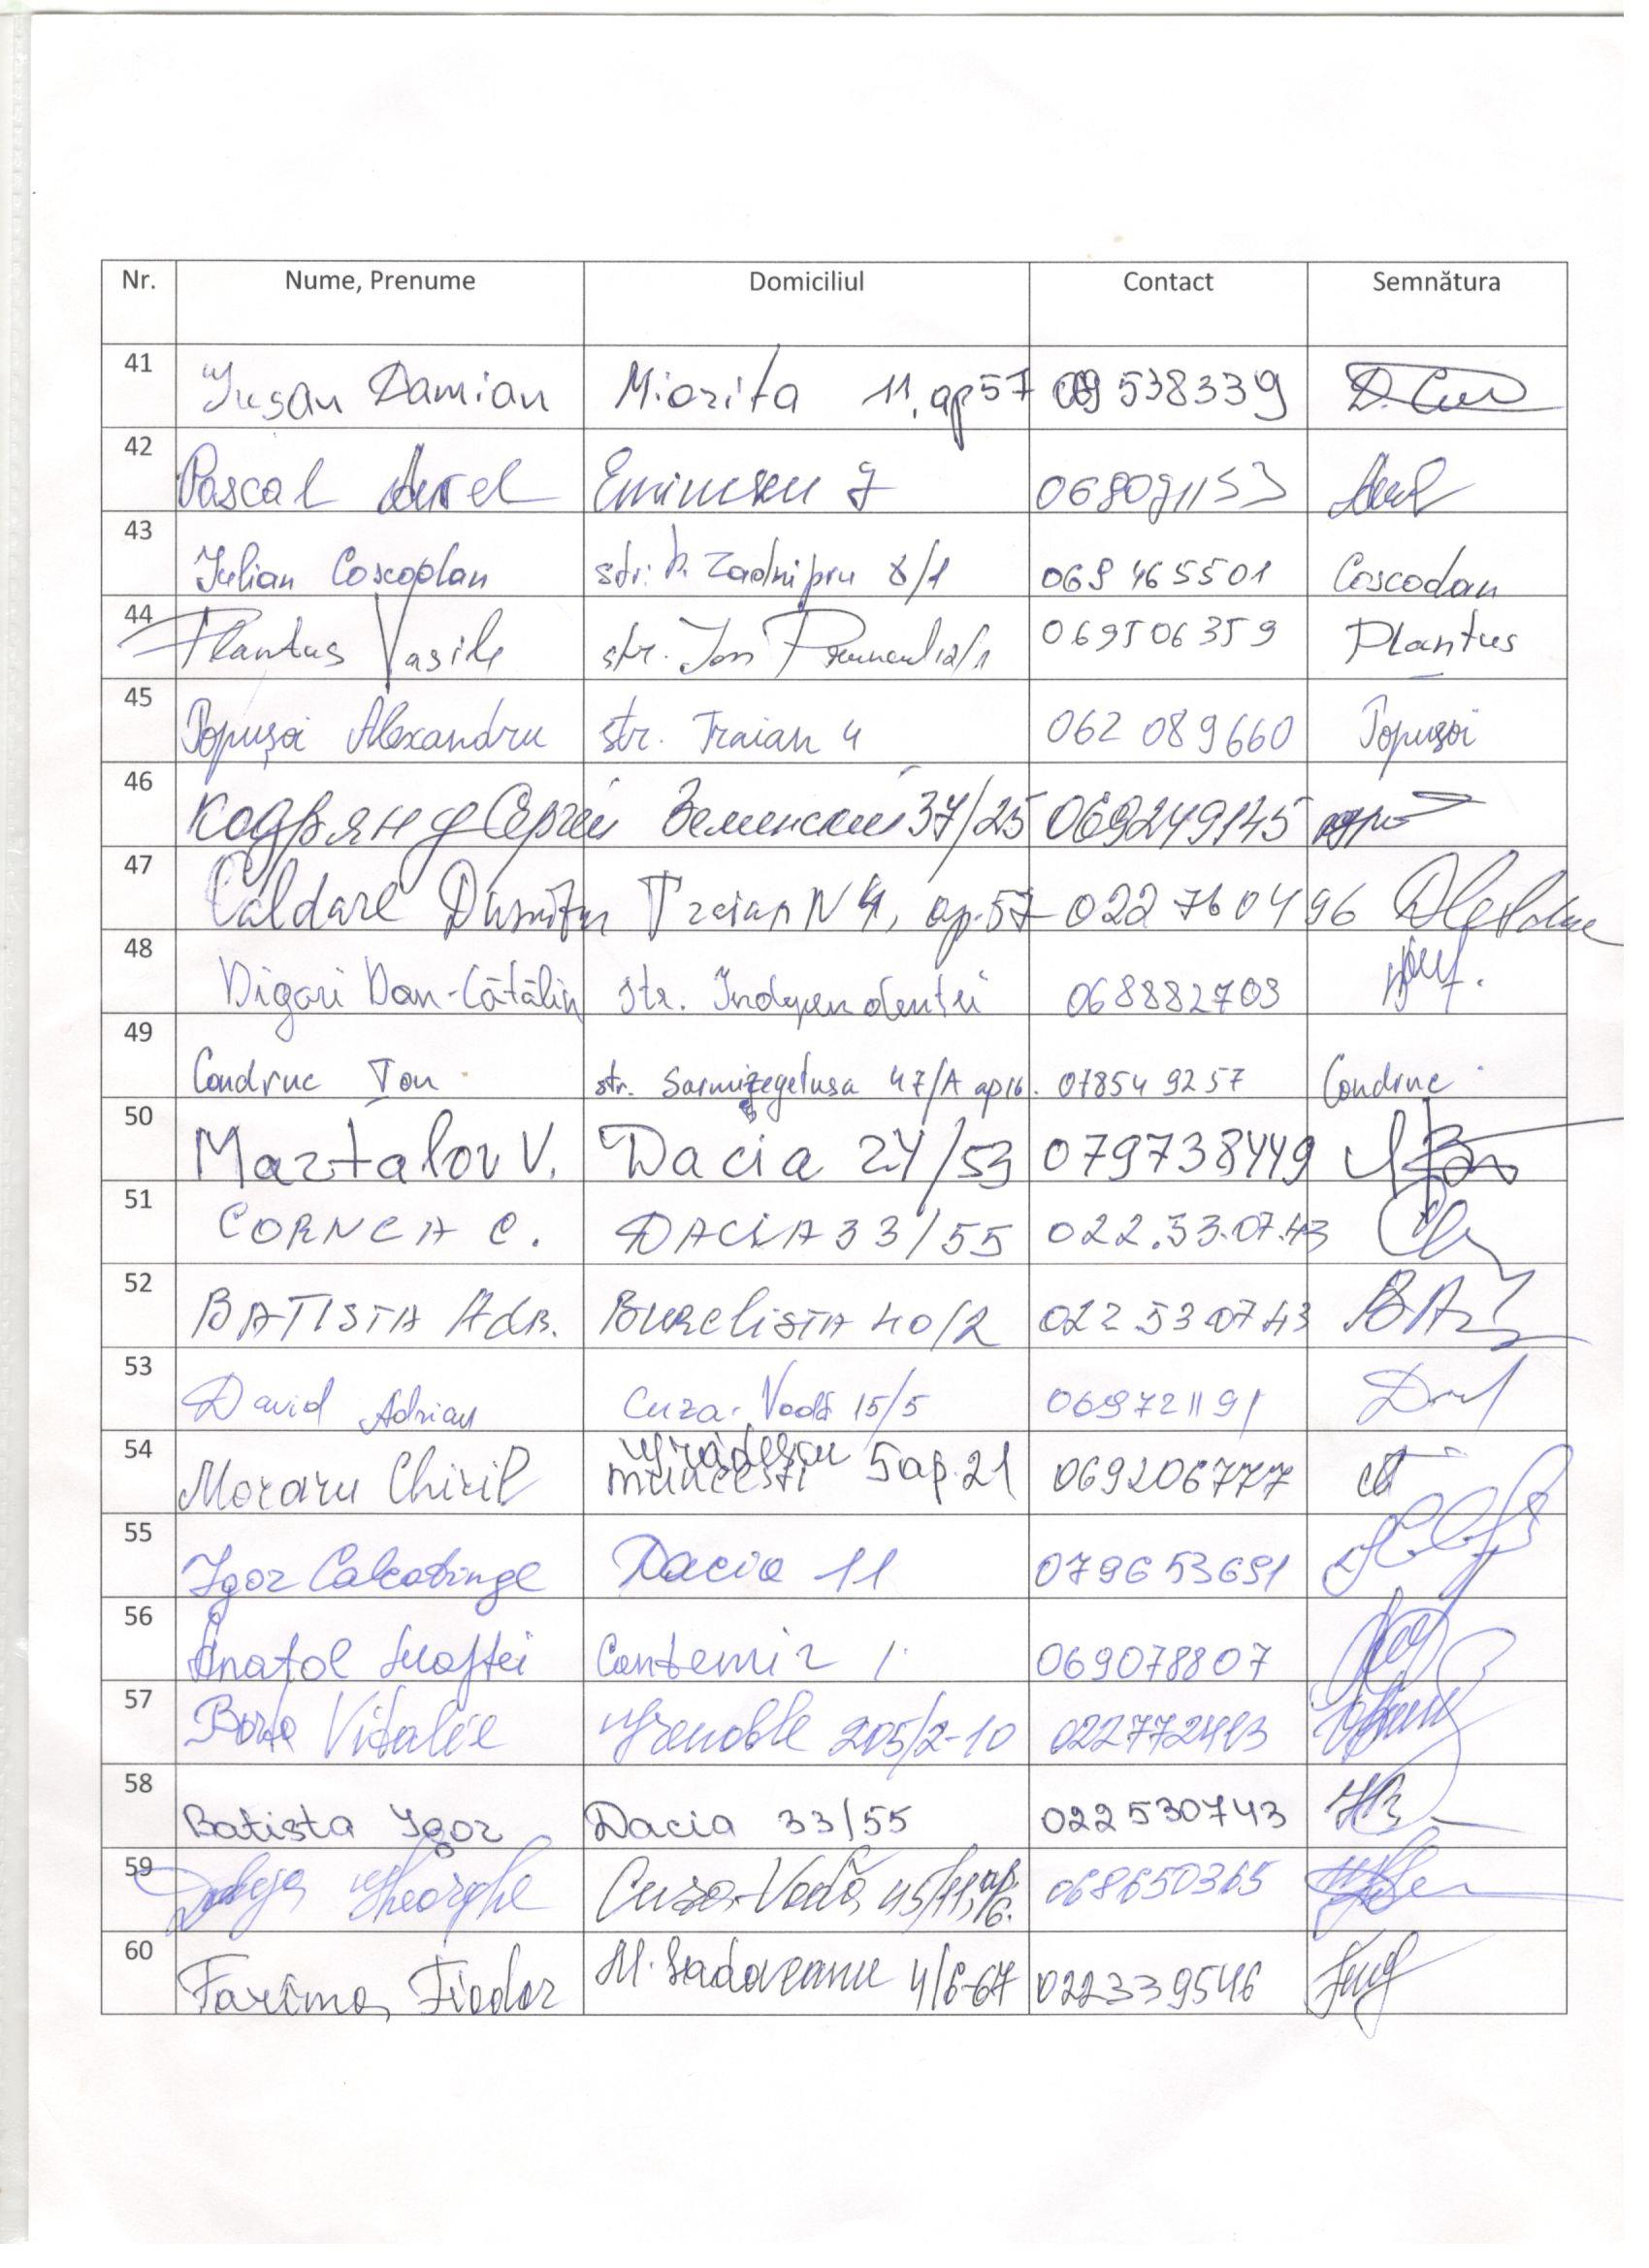 Nr. Nume, Prenume Domiciliul Contact Semnătura
41 Damian Miorita 11, ap 57 538339
42 Pascal Aurel Eminescu 7 068091153
43 Iulian Coscodan str. N. Zadnipru 8/1 069 465501 Coscodan
44 Plantus Vasile str. Ion 069506359 Plantus
45 Popușoi Alexandru str. Traian 4 062 089660 Popușoi
46 Сергей 37/25 069249145
47 Caldare Dumitru Traian N 4, ap. 57 022 760496
48 Digori Dan-Cătălin str. Independentei 068882709
49 Condruc Ion str. Sarmizegetusa 47/A ap 16. 07854 9257 Condruc
50 Martalov V. Dacia 24/53 079738449
51 CORNEA C. DACIA 33/55 022.53.07.43
52 BATISTA Adr. 40/2 022 53 07 43
53 David Adrian Cuza-Vodă 15/5 069721191
54 Moraru Chiril Grădescu muncești 5 ap. 21 069206777
55 Igor Dacia 11 079653691
56 Anatol Cantemir 1 069078807
57 Vitalie Grenoble 205/2-10 022772493
58 Batista Igor Dacia 33/55 022530743
59 Gheorghe Cuza-Vodă 45/11, ap. 16. 068650365
60 Farîma Fiodor M. Sadoveanu 4/6-67 022339546